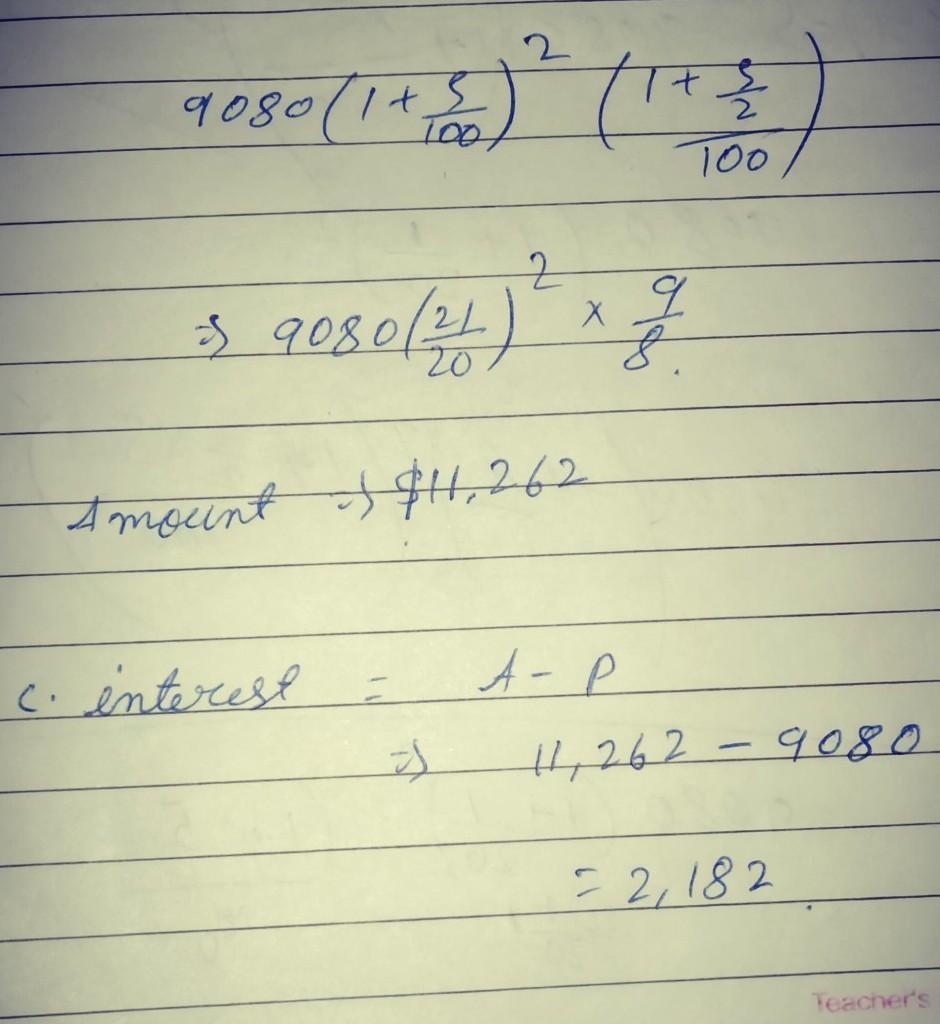 9080(1+5/100)² (1+5/2/100)
⇒ 9080(21/20)² × 9/8.
Amount ⇒ $11,262
C. interest = A - P
⇒ 11,262 - 9080
= 2,182.
Teacher's